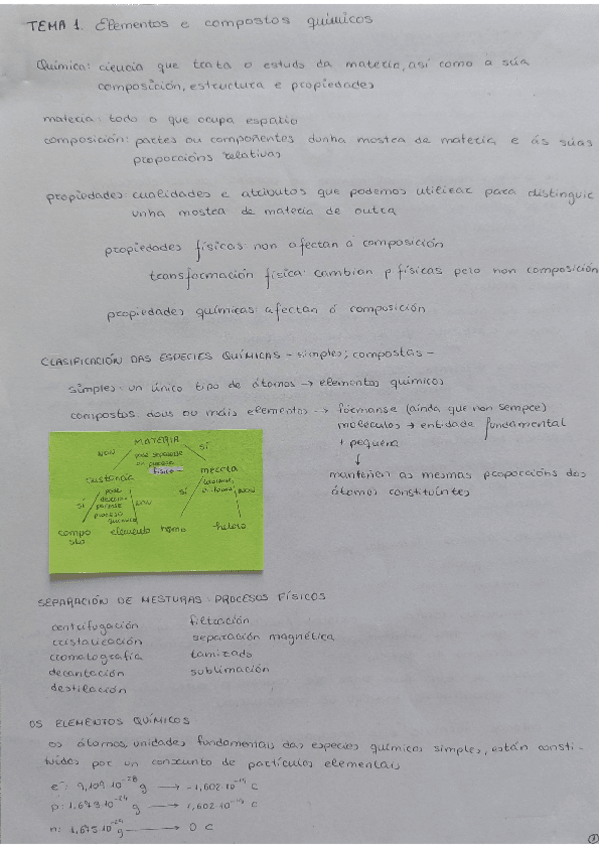 TEMA 1. Elementos e compostos químicos
Química: ciencia que trata o estudo da materia, así como a súa
composición, estructura e propiedades
materia: todo o que ocupa espatio
composición: partes ou compoñentes dunha mostra de materia e ás súas
proporcións relativas
propiedades: cualidades e atributos que podemos utilizar para distinguir
unha mostra de materia de outra
propiedades físicas: non afectan á composición
transformación física: cambian p físicas pero non composición
propiedades químicas: afectan á composición
CLASIFICACIÓN DAS ESPECIES QUÍMICAS - simples; compostas -
simples: un único tipo de átomos → elementos químicos
compostos: dous ou máis elementos → fórmanse (aínda que non sempre)
moléculas → entidade fundamental
+ pequena
↓
manteñen as mesmas proporcións dos
átomos constituíntes
MATERIA
NON
pode separarse
en procesos
físicos
SÍ
sustancia
mezcla
SÍ
pode
descom-
poñerse
proceso
químico
NON
SÍ
NON
compo
sto
elemento
homo
hetero
SEPARACIÓN DE MESTURAS: PROCESOS FÍSICOS
centrifugación
filtración
cristalización
separación magnética
cromatografía
tamizado
decantación
sublimación
destilación
OS ELEMENTOS QUÍMICOS
os átomos, unidades fundamentais das especies químicas simples, están consti-
tuídos por un conxunto de partículas elementais
e⁻: 9,109·10⁻²⁸ g → -1,602·10⁻¹⁹ C
p: 1,673·10⁻²⁴ g → 1,602·10⁻¹⁹ C
n: 1,675·10⁻²⁴ g → 0 C